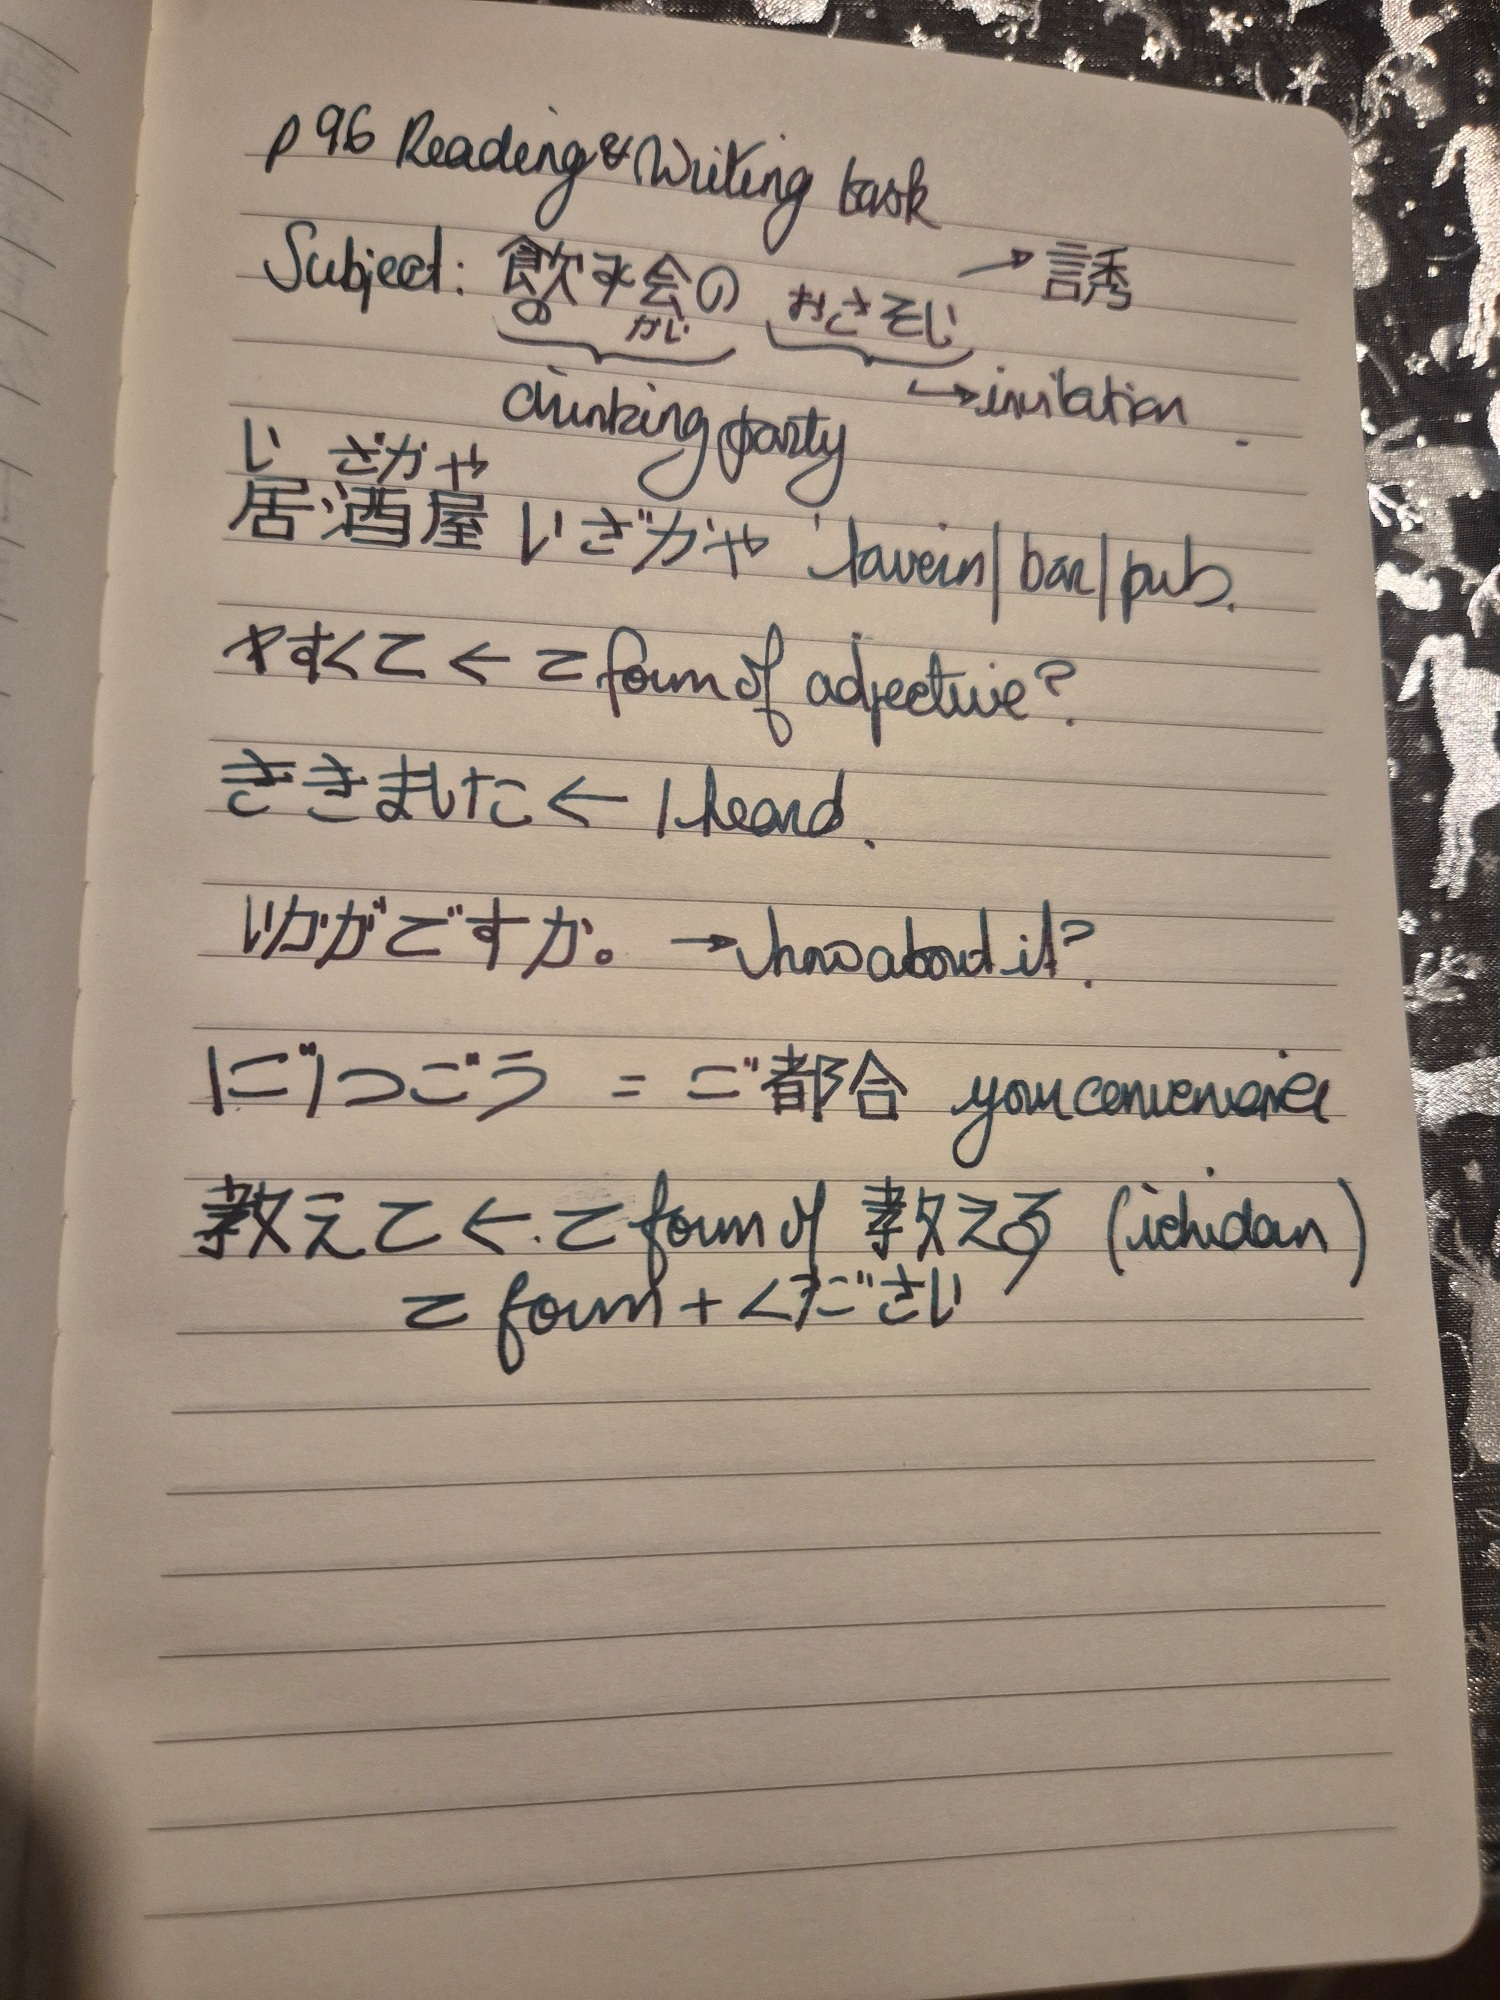 p 96 Reading & Writing task
Subject: 飲み会の おさそい → 誘
の かい
drinking party ↳ invitation
い ざかや
居酒屋 いざかや tavern/bar/pub.
やすくて ← て form of adjective?
ききました ← I heard.
いかがですか。 → how about it?
にごつごう = ご都合 your convenience
教えて ← て form of 教える (ichidan)
て form + ください